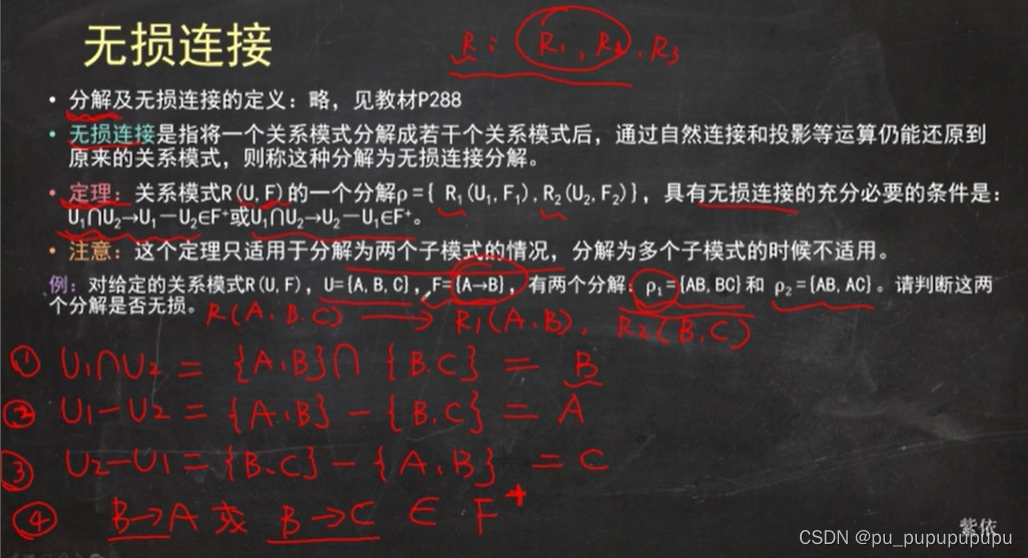 无损连接
R: R1, R2, R3
• 分解及无损连接的定义：略，见教材P288
• 无损连接是指将一个关系模式分解成若干个关系模式后，通过自然连接和投影等运算仍能还原到
原来的关系模式，则称这种分解为无损连接分解。
• 定理：关系模式R(U,F)的一个分解ρ={ R₁(U₁,F₁),R₂(U₂,F₂)}，具有无损连接的充分必要的条件是：
U₁∩U₂→U₁－U₂∈F⁺或U₁∩U₂→U₂－U₁∈F⁺。
• 注意：这个定理只适用于分解为两个子模式的情况，分解为多个子模式的时候不适用。
例：对给定的关系模式R(U,F)，U={A,B,C}，F={A→B}，有两个分解：ρ₁={AB,BC}和 ρ₂={AB,AC}。请判断这两
个分解是否无损。
R(A.B.C) → R1(A.B), R2(B.C)
① U1∩U2 = {A.B}∩{B.C} = B
② U1-U2 = {A.B} - {B.C} = A
③ U2-U1 = {B.C} - {A.B} = C
④ B→A 或 B→C ∈ F⁺
紫依
CSDN @pu_pupupupupu